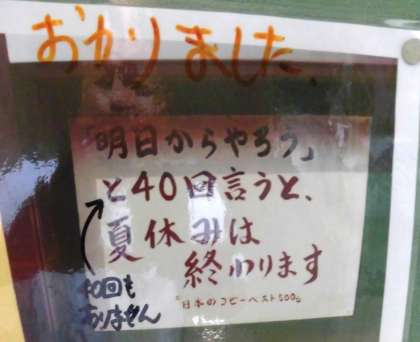 おかりました。
「明日からやろう」
と40回言うと、
夏休みは
終わります
『日本のコピーベスト500』
40回も
ありません